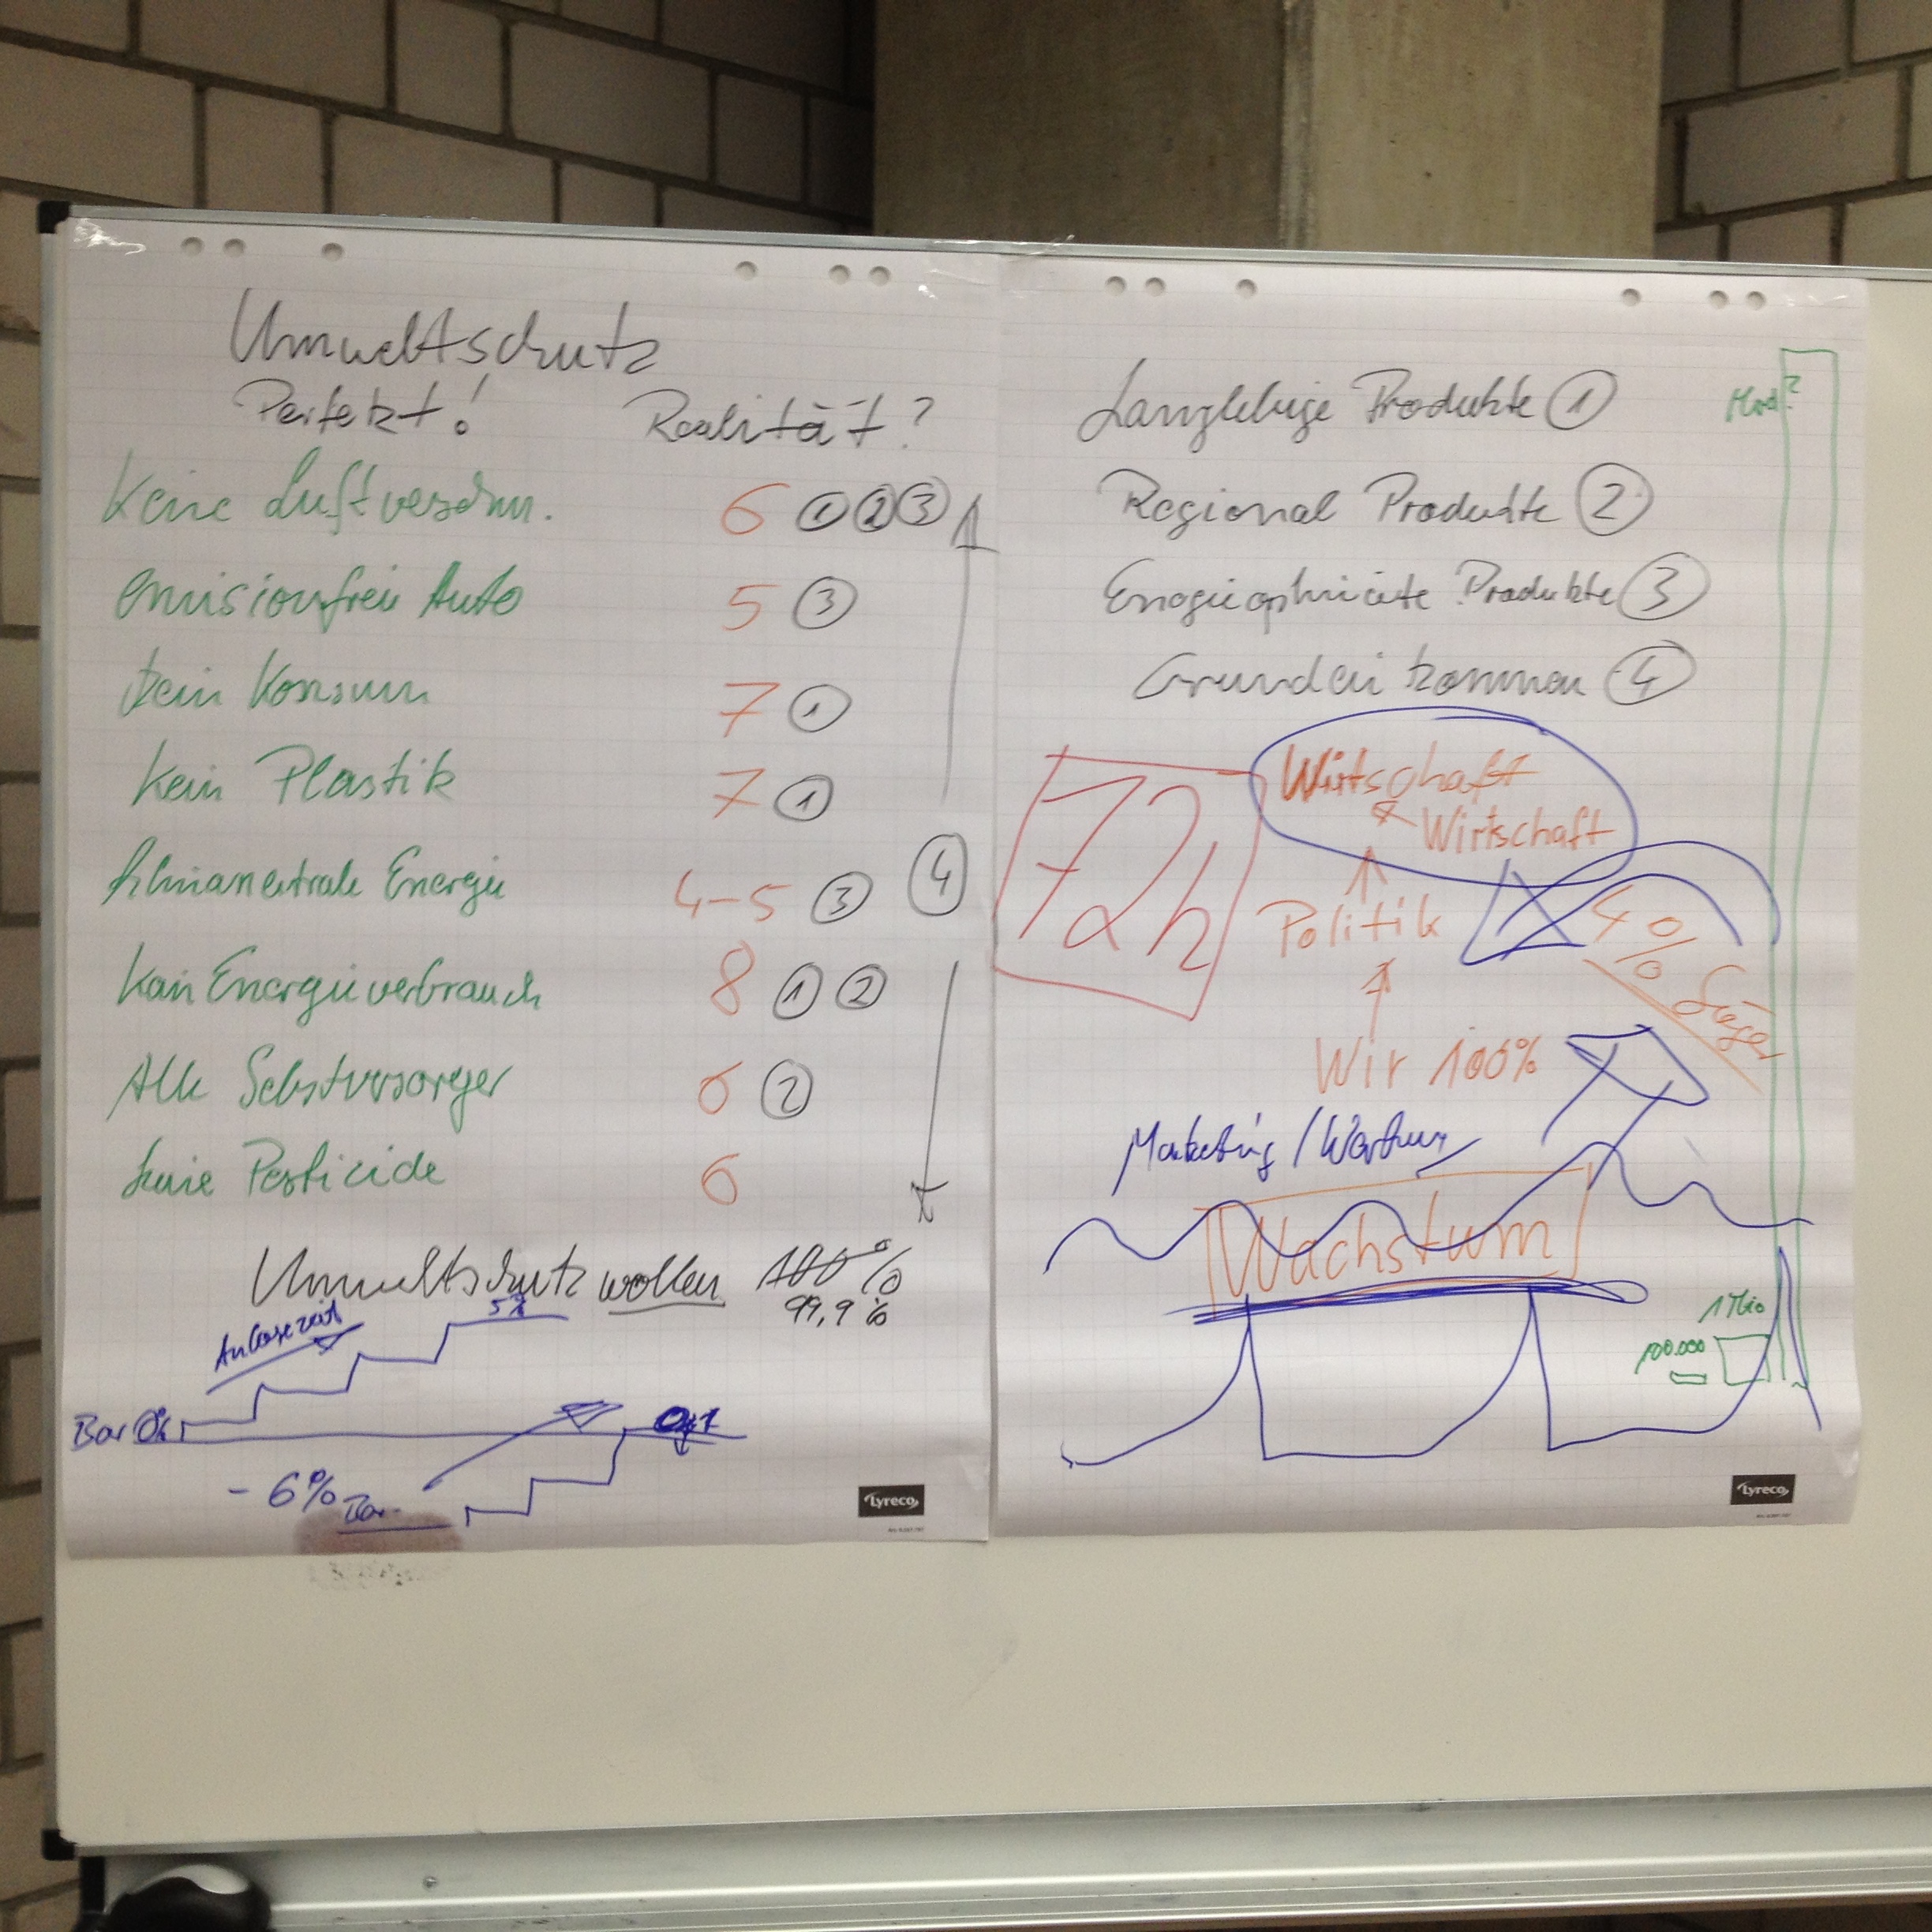 Umweltschutz
Perfekt! Realität?
Keine Luftverschm. 6 ① ② ③
emisionsfreie Auto 5 ③
kein Konsum 7 ①
kein Plastik 7 ①
klimaneutrale Energie 4-5 ③ ④
kein Energieverbrauch 8 ① ②
Alle Selbstversorger 6 ②
keine Pesticide 6
Umweltschutz wollen 100%
99,9%
5%
Bar 0%
- 6%
Bar
Lyreco
Langlebige Produkte ①
Regional Produkte ②
Produkte ③
Grundeinkommen ④
72h
Wirtschaft
& Wirtschaft
Politik
40%
Wir 100%
Marketing /
Wachstum
1 Mio
100.000
Lyreco